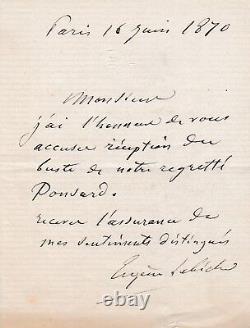 Paris 16 juin 1870
Monsieur
j'ai l'honneur de vous
accuser réception du
buste de notre regretté
Ponsard.
recevez l'assurance de
mes sentiments distingués
Eugène Labiche